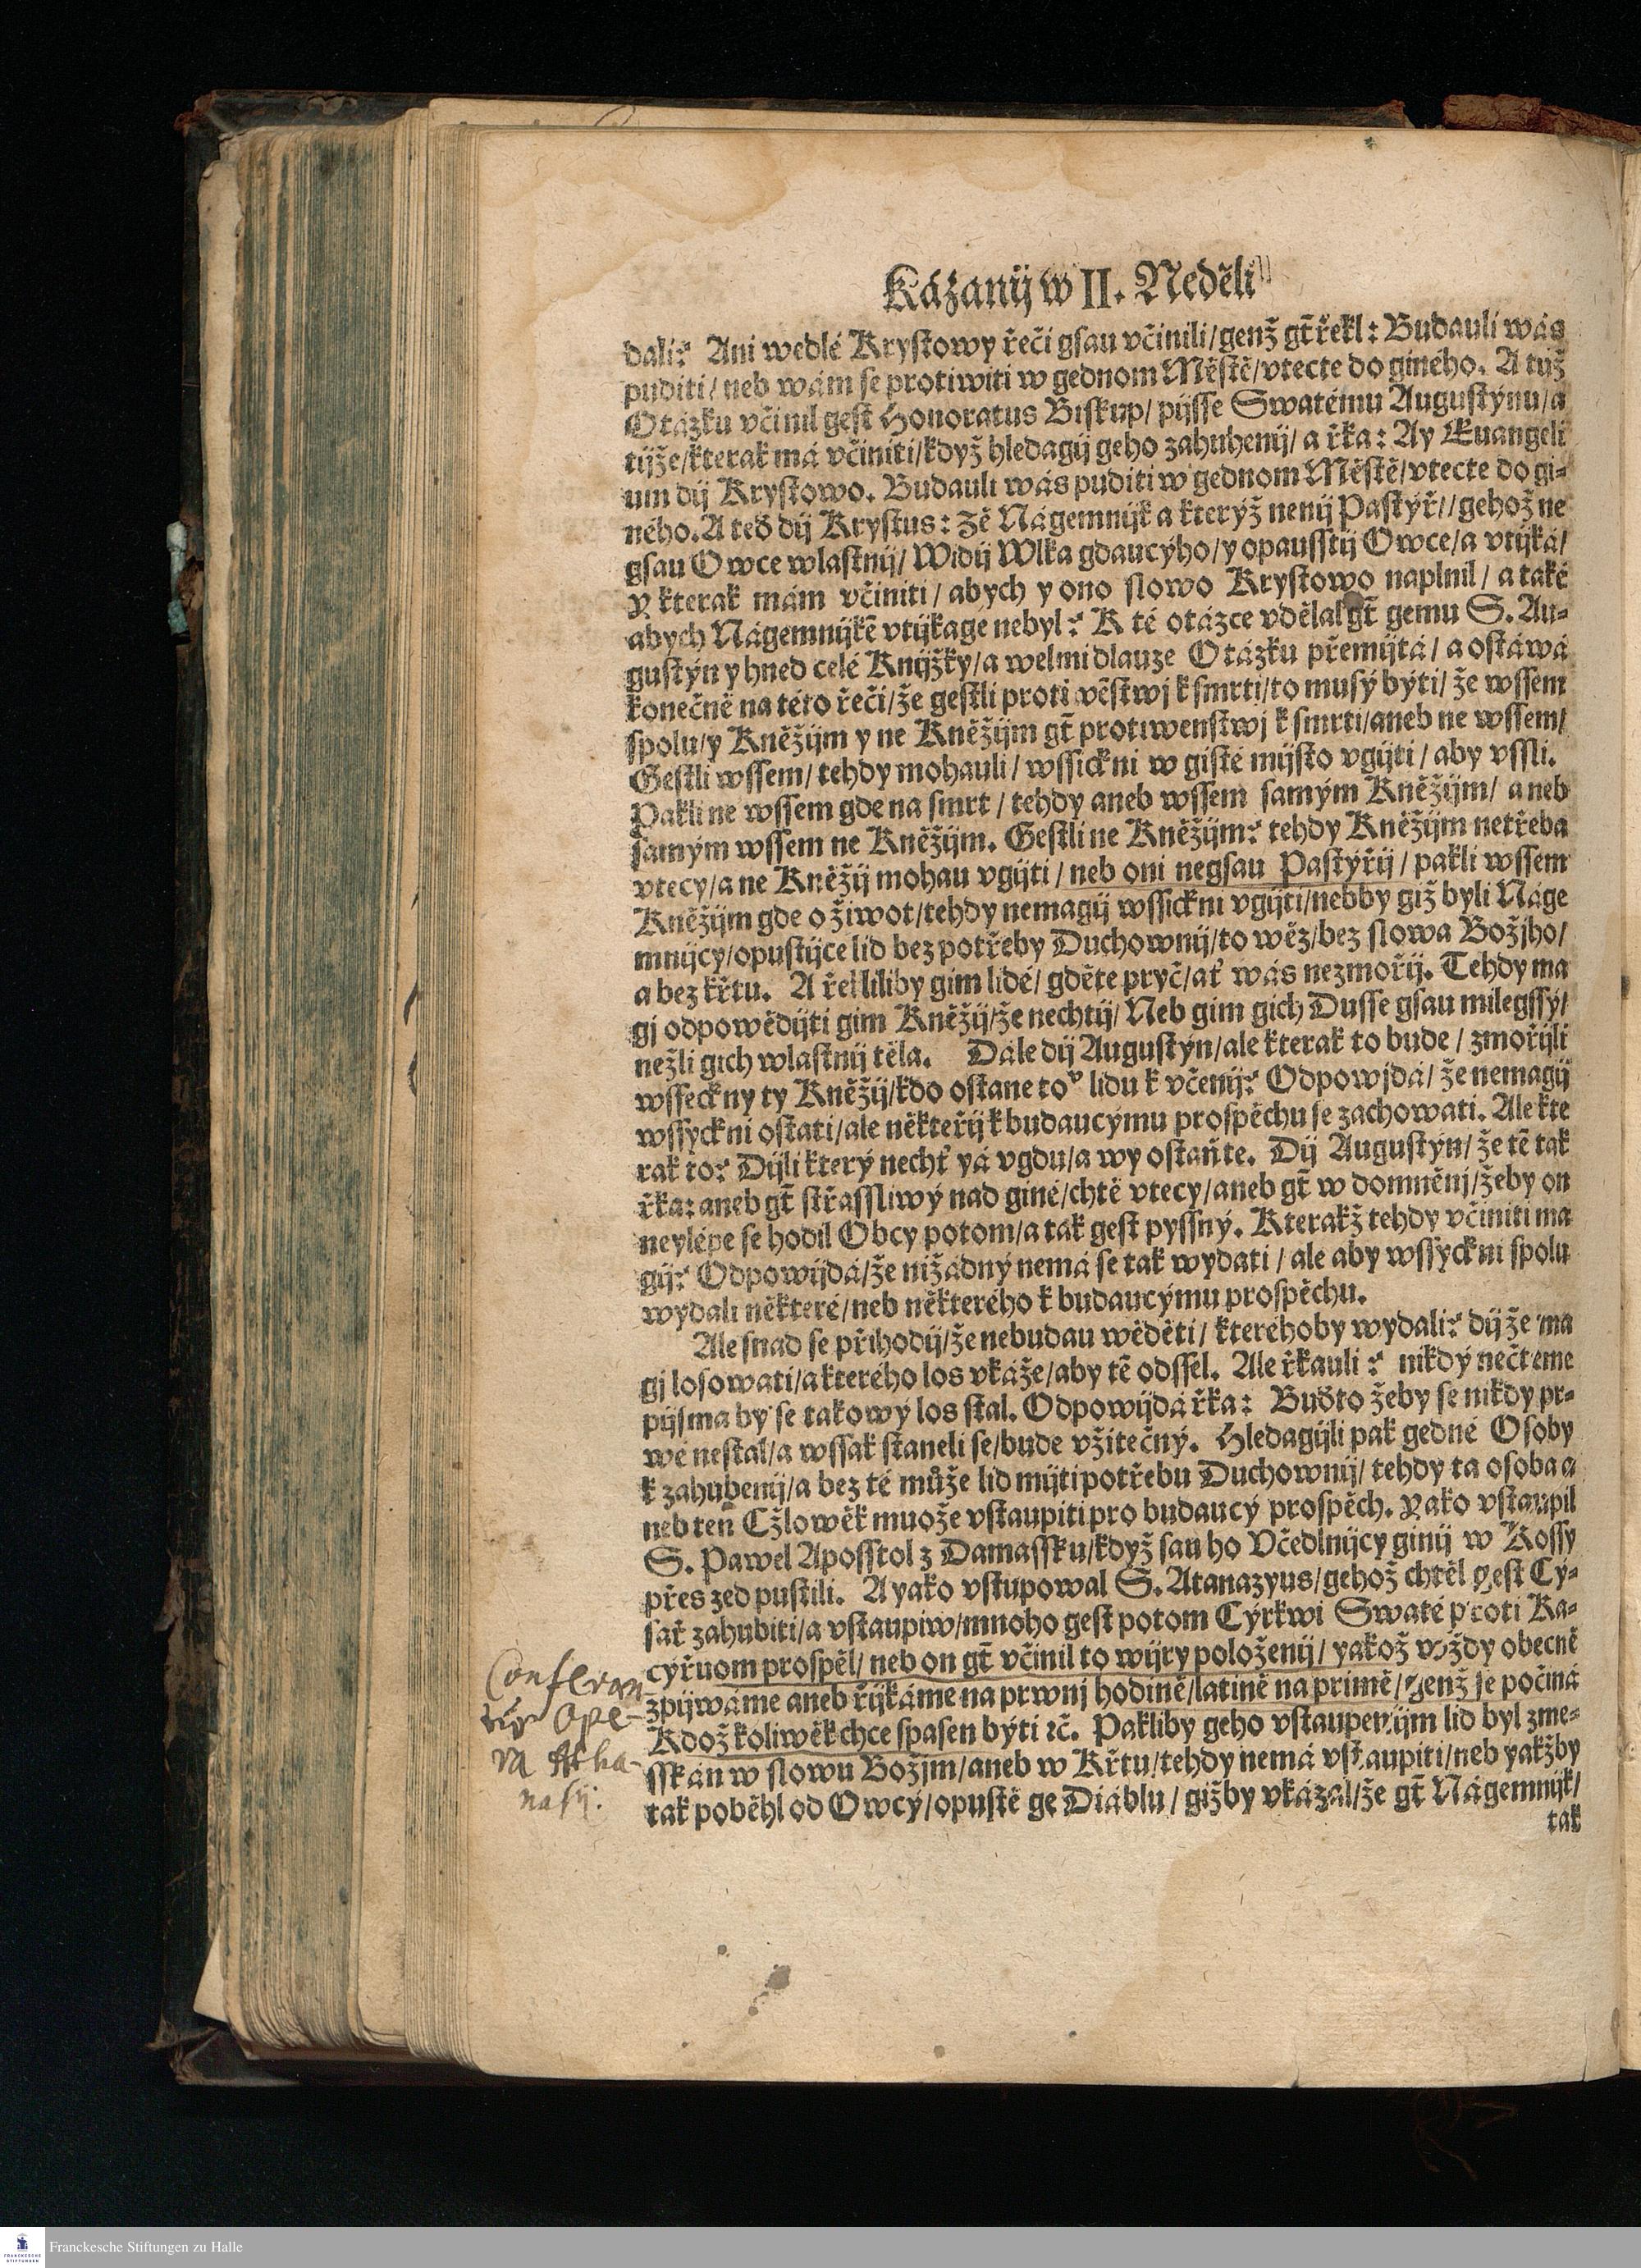 Kázanij w II. Neděli
dali? Ani wedlé Krystowy řeči gsau včinili/genž gt̄ řekl: Budauli wás
puditi/ neb wám se protiwiti w gednom Městě/vtecte do giného. A tijž
Otázku včinil gest Honoratus Biskup/ pijsse Swatému Augustýnu/a
tijže/kterak má včiniti/když hledagij geho zahuhenij/ a řka: Ay Euangeli
um dij Krystowo. Budauli wás puditi w gednom Městě/vtecte do gi-
ného. A teď dij Krystus: Zě Nágemnijk a kterýž nenij Pastýř//gehož ne
gsau Owce wlastnij/ Widij Wlka gdaucýho/y opausstij Owce/a vtijká/
Y kterak mám včiniti/ abych y ono slowo Krystowo naplnil/ a také
abych Nágemnijkē vtijkage nebyl? K té otázce vdělal gt̄ gemu S. Au-
gustýn y hned celé Knijžky/a welmi dlauze Otázku přemijtá/ a ostáwá
konečně na této řeči/že gestli proti wēstwj k smrti/to musý býti/ že wssem
spolu/y Kněžijm y ne Kněžijm gt̄ protiwenstwj k smrti/aneb ne wssem/
Gestli wssem/ tehdy mohauli/ wssickni w gisté mijsto vgijti/ aby vssli.
Pakli ne wssem gde na smrt/ tehdy aneb wssem samým Kněžijm/ aneb
samým wssem ne Kněžijm. Gestli ne Kněžijm? tehdy Kněžijm netřeba
vtecy/a ne Kněžij mohau vgijti/ neb oni negsau Pastýřij/ pakli wssem
Kněžijm gde o žiwot/tehdy nemagij wssickni vgijti/nebby giž byli Náge
mnijcy/opustijce lid bez potřeby Duchownij/to wěz/bez slowa Božjho/
a bez křtu. A řekliliby gim lidé/ gděte pryč/ať wás nezmořij. Tehdy ma
gj odpowědijti gim Kněžij/že nechtij/ Neb gim gich Dusse gsau milegssý/
nežli gich wlastnij těla. Dále dij Augustýn/ale kterak to bude/ zmořijli
wsseckny ty Kněžij/kdo ostane toͮ lidu k včenij? Odpowjdá/ že nemagij
wssyckni ostati/ale někteřij k budaucýmu prospěchu se zachowati. Ale kte
rak to? Dijli který nechť yá vgdu/a wy ostaňte. Dij Augustýn/ že tē tak
řka: aneb gt̄ střassliwý nad giné/chtě vtecy/aneb gt̄ w domněnj/žeby on
neylépe se hodil Obcy potom/a tak gest pyssný. Kterakž tehdy včiniti ma
gij? Odpowijdá/že nižádný nemá se tak wydati/ ale aby wssyckni spolu
wydali některé/neb některého k budaucýmu prospěchu.
Ale snad se přihodij/že nebudau wěděti/ kteréhoby wydali? dij že ma
gj losowati/a kterého los vkáže/aby tē odssel. Ale řkauli? nikdý nečteme
pijsma by se takowý los stal. Odpowijdá řka: Buďto žeby se nikdy pr-
wé nestal/a wssak staneli se/bude vžitečný. Hledagijli pak gedné Osoby
k zahubenij/a bez té může lid mijti potřebu Duchownij/ tehdy ta osoba a
neb ten Cžlowěk muože vstaupiti pro budaucý prospěch. Yako vstaupil
S. Pawel Aposstol z Damassku/když sau ho Včedlnijcy ginij w Kossy
přes zed pustili. A yako vstupowal S. Atanazyus/gehož chtěl gest Cý-
sař zahubiti/a vstaupiw/mnoho gest potom Cýrkwi Swaté proti Ka-
cyřuom prospěl/ neb on gt̄ včinil to wijry položenij/ yakož wždy obecně
zpijwáme aneb řijkáme na prwnj hodině/latině na primě/genž se počiná
Kdož koliwěk chce spasen býti ꝛč. Pakliby geho vstaupenijm lid byl zme-
sskán w slowu Božjm/aneb w Křtu/tehdy nemá vstaupiti/neb yakžby
tak poběhl od Owcý/opustě ge Diáblu/ gižby vkázal/že gt̄ Nágemnijk/
tak
Conferan
tur Ope-
ra Atha-
nasij.
Franckesche Stiftungen zu Halle